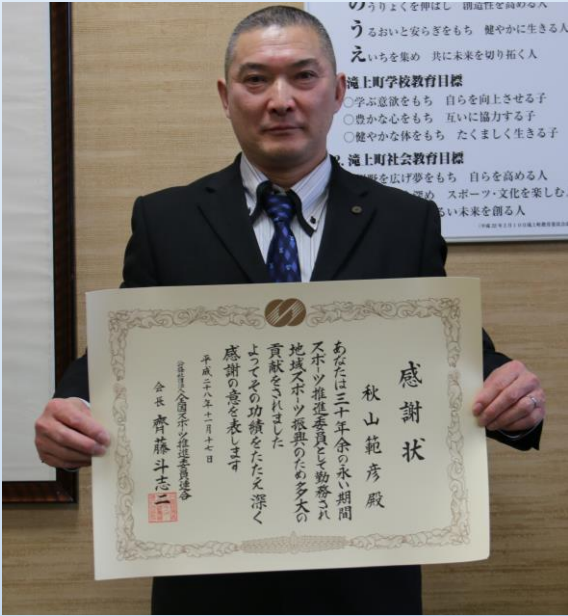 のうりょくを伸ばし 創造性を高める人
うるおいと安らぎをもち 健やかに生きる人
えいちを集め 共に未来を切り拓く人
滝上町学校教育目標
○学ぶ意欲をもち 自らを向上させる子
○豊かな心をもち 互いに協力する子
○健やかな体をもち たくましく生きる子
2. 滝上町社会教育目標
を広げ夢をもち 自らを高める人
深め スポーツ・文化を楽しむ
るい未来を創る人
感謝状
秋山範彦殿
あなたは三十年余の永い期間
スポーツ推進委員として勤務され
地域スポーツ振興のため多大の
貢献をされました
よってその功績をたたえ深く
感謝の意を表します
平成二十八年十一月十七日
公益社団法人全国スポーツ推進委員連合
会長 齊藤斗志二